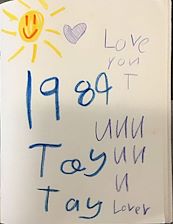 Love
you
T
1989
UUU
Tay UU
U
Tay Lover